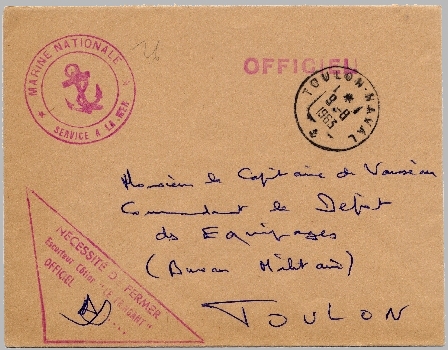 MARINE NATIONALE
SERVICE A LA MER
OFFICIEL
TOULON-NAVAL
9-8
1965
Monsieur le Capitaine de Vaisseau
Commandant le Dépot
des Equipages
(Bureau Militaire)
TOULON
NÉCESSITÉ DE FERMER
Escorteur Côtier
OFFICIEL